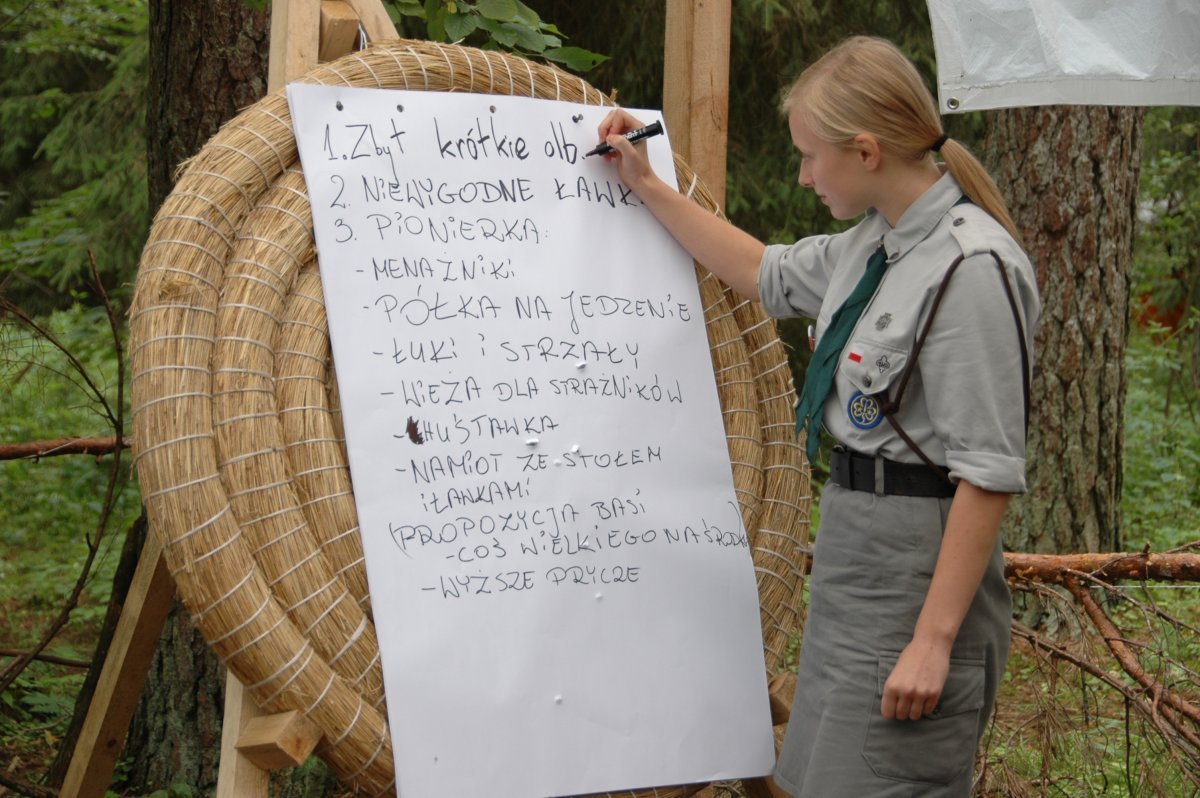 1. Zbyt krótkie olb
2. NIEWYGODNE ŁAWKI
3. PIONIERKA:
- MENAŻNIKI
- PÓŁKA NA JEDZENIE
- ŁUKI I STRZAŁY
- WIEŻA DLA STRAŻNIKÓW
- HUŚTAWKA
- NAMIOT ZE STOŁEM
I ŁANKAMI
(PROPOZYCJA BASI)
- COŚ WIELKIEGO NA ŚRODKU
- WYŻSZE PRYCZE